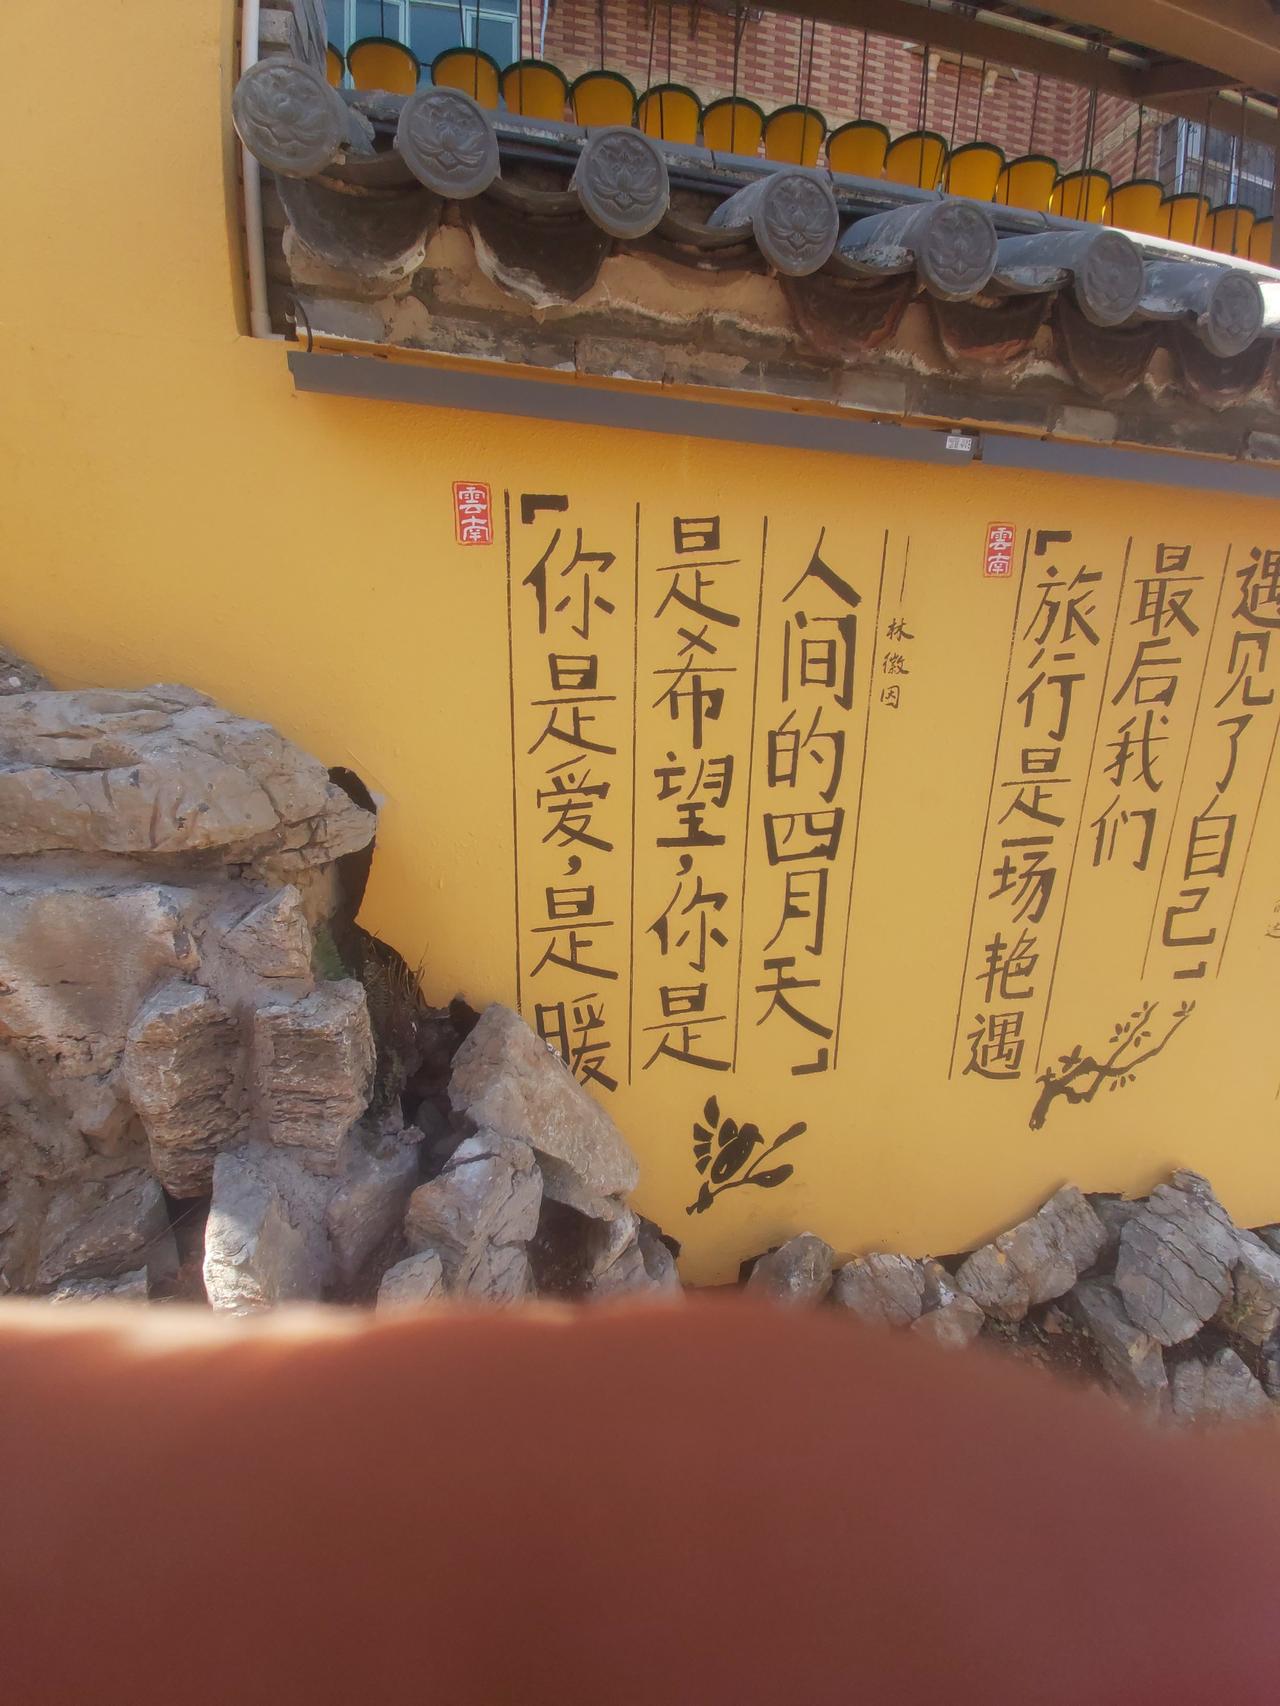 雲南
「你是爱，是暖
是希望，你是
人间的四月天」
——林徽因
雲南
「旅行是一场艳遇
最后我们
遇见了自己」